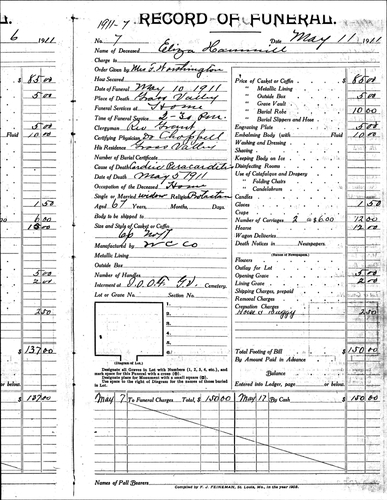 6 1911
$ 85.00
5.00
Fluid 10.00
1.50
6.00
15.00
5.00
2.00
2.50
$ 137.00
or below.
137.00
1911-7
RECORD OF FUNERAL.
No. 7 Date May 11 1911
Name of Deceased Eliza Hammill
Charge to
Order Given by Mrs T. Worthington
How Secured
Date of Funeral May 10 1911
Place of Death Grass Valley
Funeral Services at Home
Time of Funeral Service 2-30 P.m.
Clergyman Rev
Certifying Physician Dr Chappell
His Residence Grass Valley
Number of Burial Certificate
Cause of Death Cardiac
Date of Death May 5 1911
Occupation of the Deceased Home
Single or Married widow Religion Protestan
Aged 67 Years, Months, Days.
Body to be shipped to
Size and Style of Casket or Coffin
Manufactured by W C Co
Metallic Lining
Outside Box
Number of Handles
Interment at I.O.O.F. Cemetery.
Lot or Grave No. Section No.
(Diagram of Lot.)
1.
2.
3.
4.
5.
Designate all Graves in Lot with Numbers (1, 2, 3, 4, etc.), and
mark space for this Funeral with a cross
Designate place for Monument with a small square
Use space to the right of Diagram for the names of those buried
in Lot.
Price of Casket or Coffin $ 85.00
" Metallic Lining
" Outside Box 5.00
" Grave Vault
" Burial Robe 10.00
" Burial Slippers and Hose
Engraving Plate 5.00
Embalming Body (with Fluid) 10.00
Washing and Dressing
Shaving
Keeping Body on Ice
Disinfecting Rooms
Use of Catafalque and Drapery
" Folding Chairs
" Candelabrum
Candles
Gloves 1.50
Crape
Number of Carriages 2 @ $6.00 12.00
Hearse 12.00
Wagon Deliveries
Death Notices in Newspapers.
(Names of Newspapers.)
Flowers
Outlay for Lot
Opening Grave 5.00
Lining Grave 2.00
Shipping Charges, prepaid
Removal Charges
Cremation Charges
Horse & Buggy 2.50
Total Footing of Bill $ 150.00
By Amount Paid in Advance
Balance
Entered into Ledger, page or below.
May 7 To Funeral Charges Total, $ 150.00 May 17 By Cash $ 150.00
Names of Pall Bearers
Compiled by F. J. FEINEMAN, St. Louis, Mo., in the year 1908.